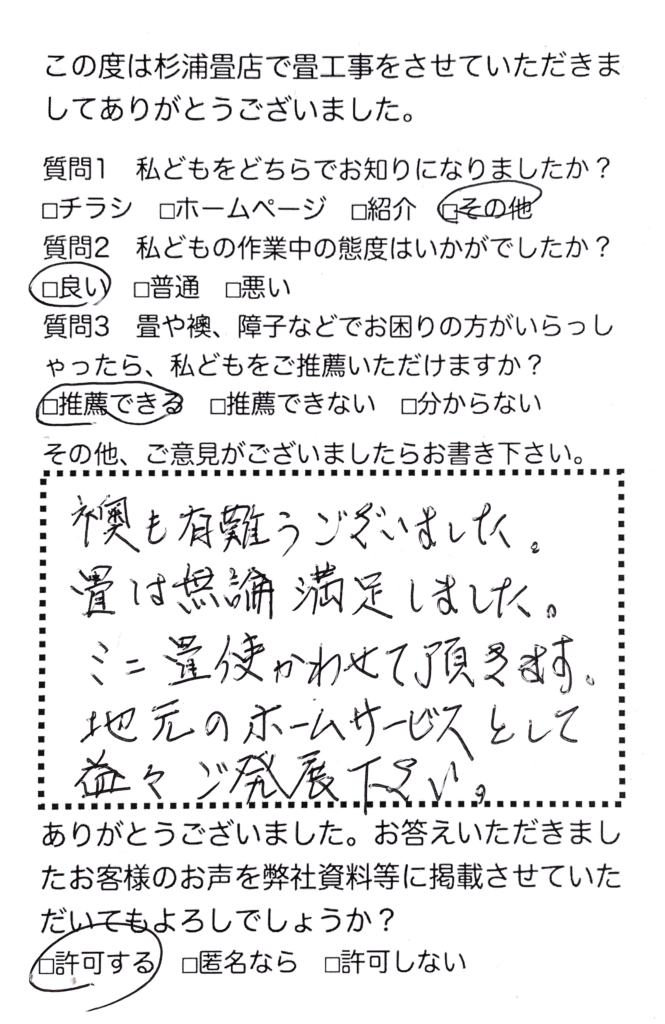 この度は杉浦畳店で畳工事をさせていただきま
してありがとうございました。
質問1　私どもをどちらでお知りになりましたか？
□チラシ　□ホームページ　□紹介　□その他
質問2　私どもの作業中の態度はいかがでしたか？
□良い　□普通　□悪い
質問3　畳や襖、障子などでお困りの方がいらっし
ゃったら、私どもをご推薦いただけますか？
□推薦できる　□推薦できない　□分からない
その他、ご意見がございましたらお書き下さい。
襖も有難うございました。
畳は無論満足しました。
ミニ畳使かわせて頂きます。
地元のホームサービスとして
益々ご発展下さい。
ありがとうございました。お答えいただきまし
たお客様のお声を弊社資料等に掲載させていた
だいてもよろしでしょうか？
□許可する　□匿名なら　□許可しない